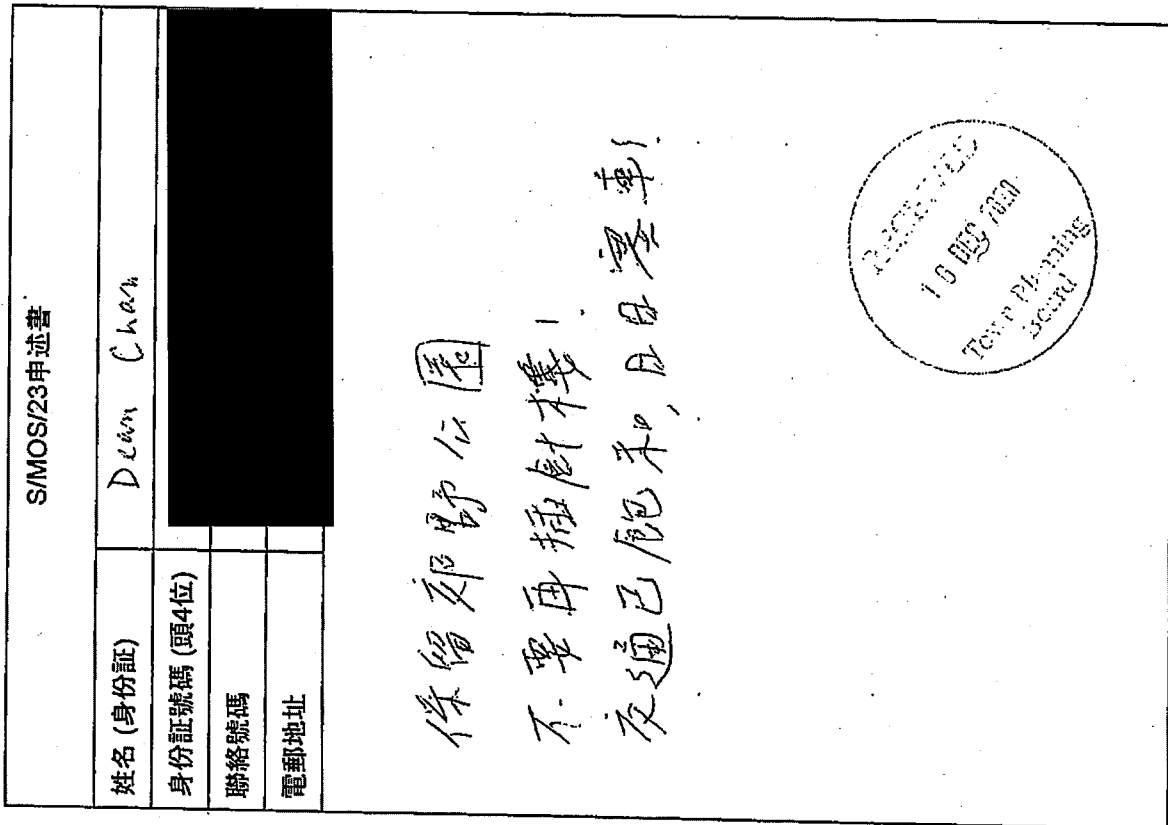 S/MOS/23申述書
姓名 (身份証)
Dean Chan
身份証號碼 (頭4位)
聯絡號碼
電郵地址
保留郊野公園
不要再插針樓!
交通已飽和,日日塞車!
RECEIVED
16 DEC 2020
Town Planning
Board